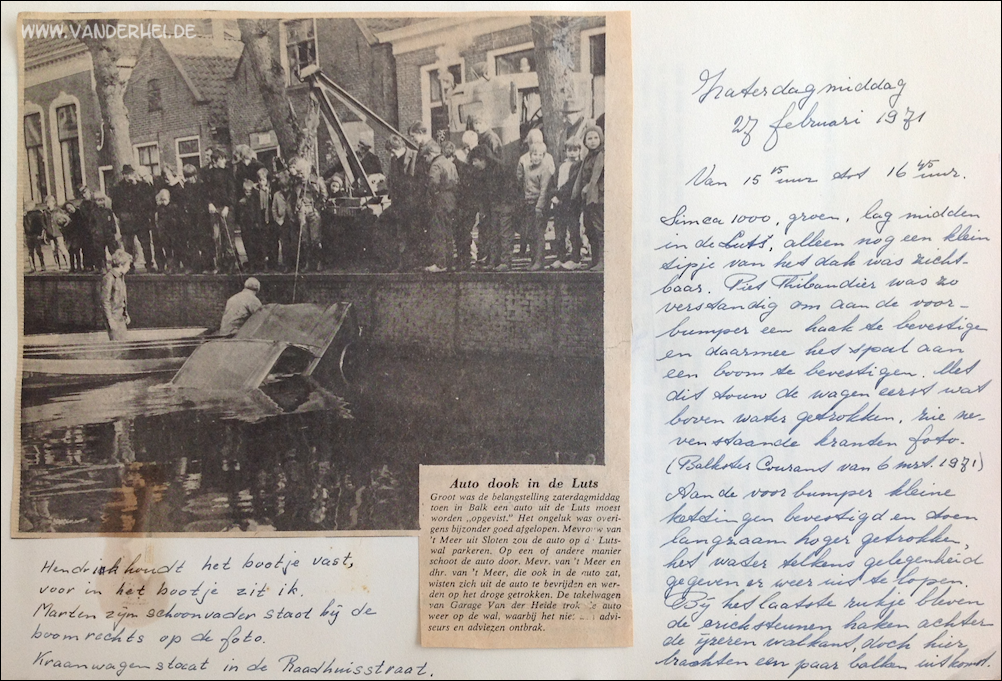 WWW.VANDERHEI.DE
Auto dook in de Luts
Groot was de belangstelling zaterdagmiddag
toen in Balk een auto uit de Luts moest
worden „opgevist." Het ongeluk was overi-
gens bijzonder goed afgelopen. Mevrouw van
't Meer uit Sloten zou de auto op de Luts-
wal parkeren. Op een of andere manier
schoot de auto door. Mevr. van 't Meer en
dhr. van 't Meer, die ook in de auto zat,
wisten zich uit de auto te bevrijden en wer-
den op het droge getrokken. De takelwagen
van Garage Van der Heide trok de auto
weer op de wal, waarbij het niet aan advi-
seurs en adviezen ontbrak.
Hendrik houdt het bootje vast,
voor in het bootje zit ik.
Marten zijn schoonvader staat bij de
boom rechts op de foto.
Kraanwagen staat in de Raadhuisstraat.
Zaterdagmiddag
27 februari 1971
Van 15 15 uur tot 16 45 uur.
Simca 1000, groen, lag midden
in de Luts, alleen nog een klein
tipje van het dak was zicht-
baar. Piet Thibaudier was zo
verstandig om aan de voor-
bumper een haak te bevestigen
en daarmee het spul aan
een boom te bevestigen. Met
dit touw de wagen eerst wat
boven water getrokken, zie ne-
venstaande kranten foto.
(Balkster Courant van 6 mrt. 1971)
Aan de voorbumper kleine
kettingen bevestigd en toen
langzaam hoger getrokken,
het water telkens gelegenheid
gegeven er weer uit te lopen.
Bij het laatste rukje bleven
de cricksteunen haken achter
de ijzeren walkant, doch hier
brachten een paar balken uitkomst.